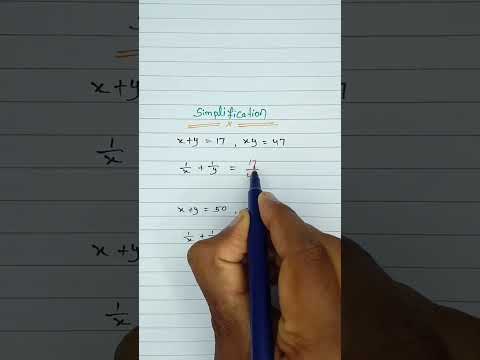 Simplification
x+y = 17 , xy = 47
1/x + 1/y = 17/
x+y = 50 ,
1/x + 1/